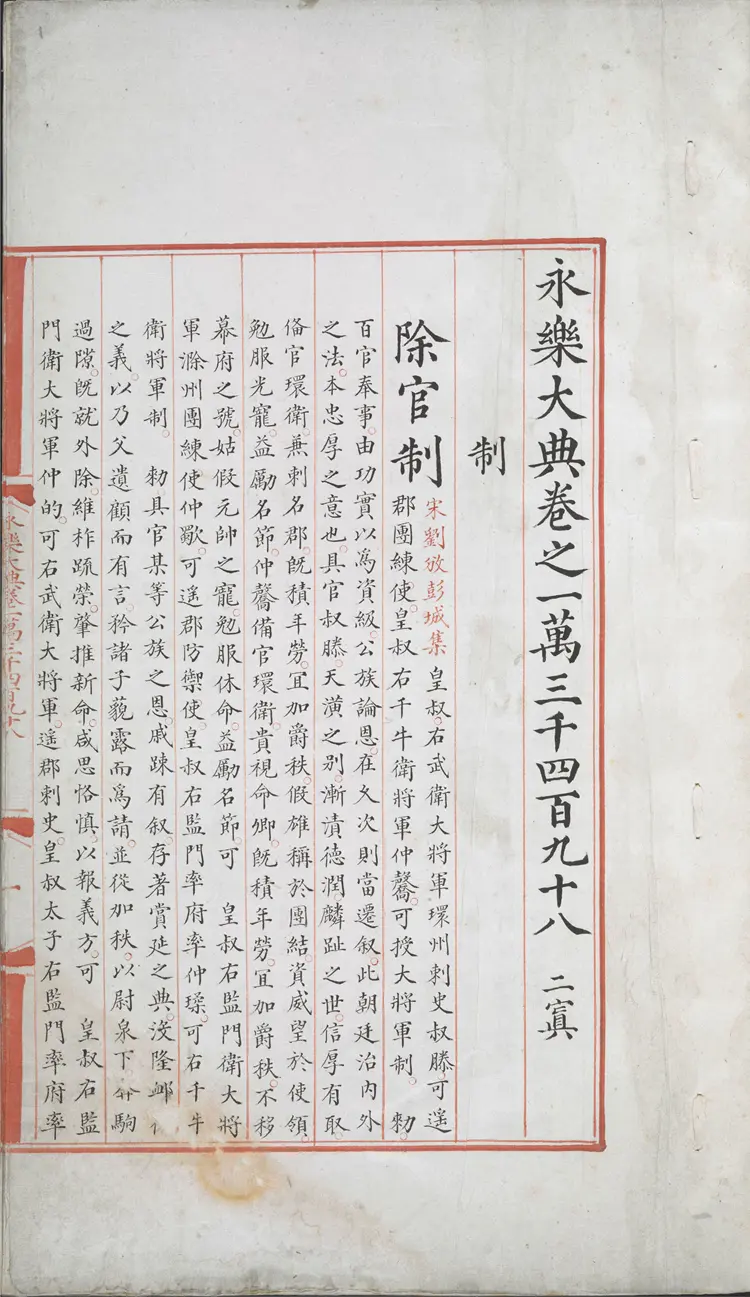 永樂大典卷之一萬三千四百九十八 二寘
制
除官制
宋劉攽彭城集 皇叔右武衛大將軍環州刺史叔滕可遥
郡團練使皇叔右千牛衛將軍仲騖可授大將軍制 勑
百官奉事由功實以爲資級公族論恩在久次則當遷叙此朝廷治内外
之法本忠厚之意也具官叔滕天潢之别漸漬德潤麟趾之世信厚有取
俻官環衛兼刺名郡旣積年勞冝加爵秩假雄稱於團結資威望於使領
勉服光寵益勵名節仲騖備官環衛貴視命卿旣積年勞冝加爵秩不移
幕府之號姑假元帥之寵勉服休命益勵名節可 皇叔右監門衛大將
軍滁州團練使仲歜可遥郡防禦使皇叔右監門率府率仲瑈可右千牛
衛將軍制 勑具官某等公族之恩戚踈有叙存著賞延之典没隆
之義以乃父遺顧而有言矜諸子藐露而爲請並從加秩以尉泉下 駒
過隙旣就外除維柞疏榮肇推新命咸思恪慎以報義方可 皇叔右監
門衛大將軍仲的可右武衛大將軍遥郡刺史皇叔太子右監門率府率
永樂大典卷一萬三千四百九十八
一